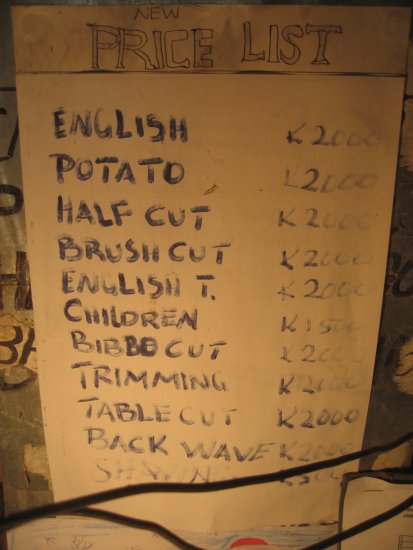 NEW
PRICE LIST
ENGLISH K2000
POTATO K2000
HALF CUT K2000
BRUSH CUT K2000
ENGLISH T. K2000
CHILDREN K1500
BIBBO CUT K2000
TRIMMING K2000
TABLE CUT K2000
BACK WAVE K2000
SHAVING K500